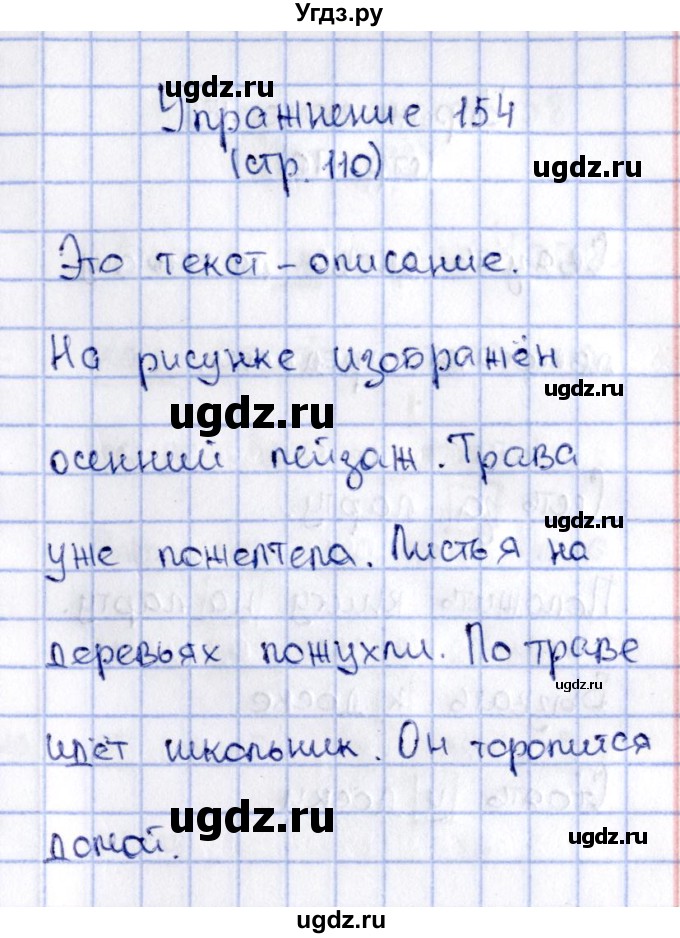 Угдз.ру
ugdz.ru
Упражнение 154
(стр. 110)
ugdz.ru
Это текст-описание.
На рисунке изображён
ugdz.ru
ugdz.ru
осенний пейзаж. Трава
ugdz.ru
уже пожелтела. Листья на
деревьях пожухли. По траве
ugdz.ru
идёт школьник. Он торопится
ugdz.ru
ugdz.ru
домой.
ugdz.ru